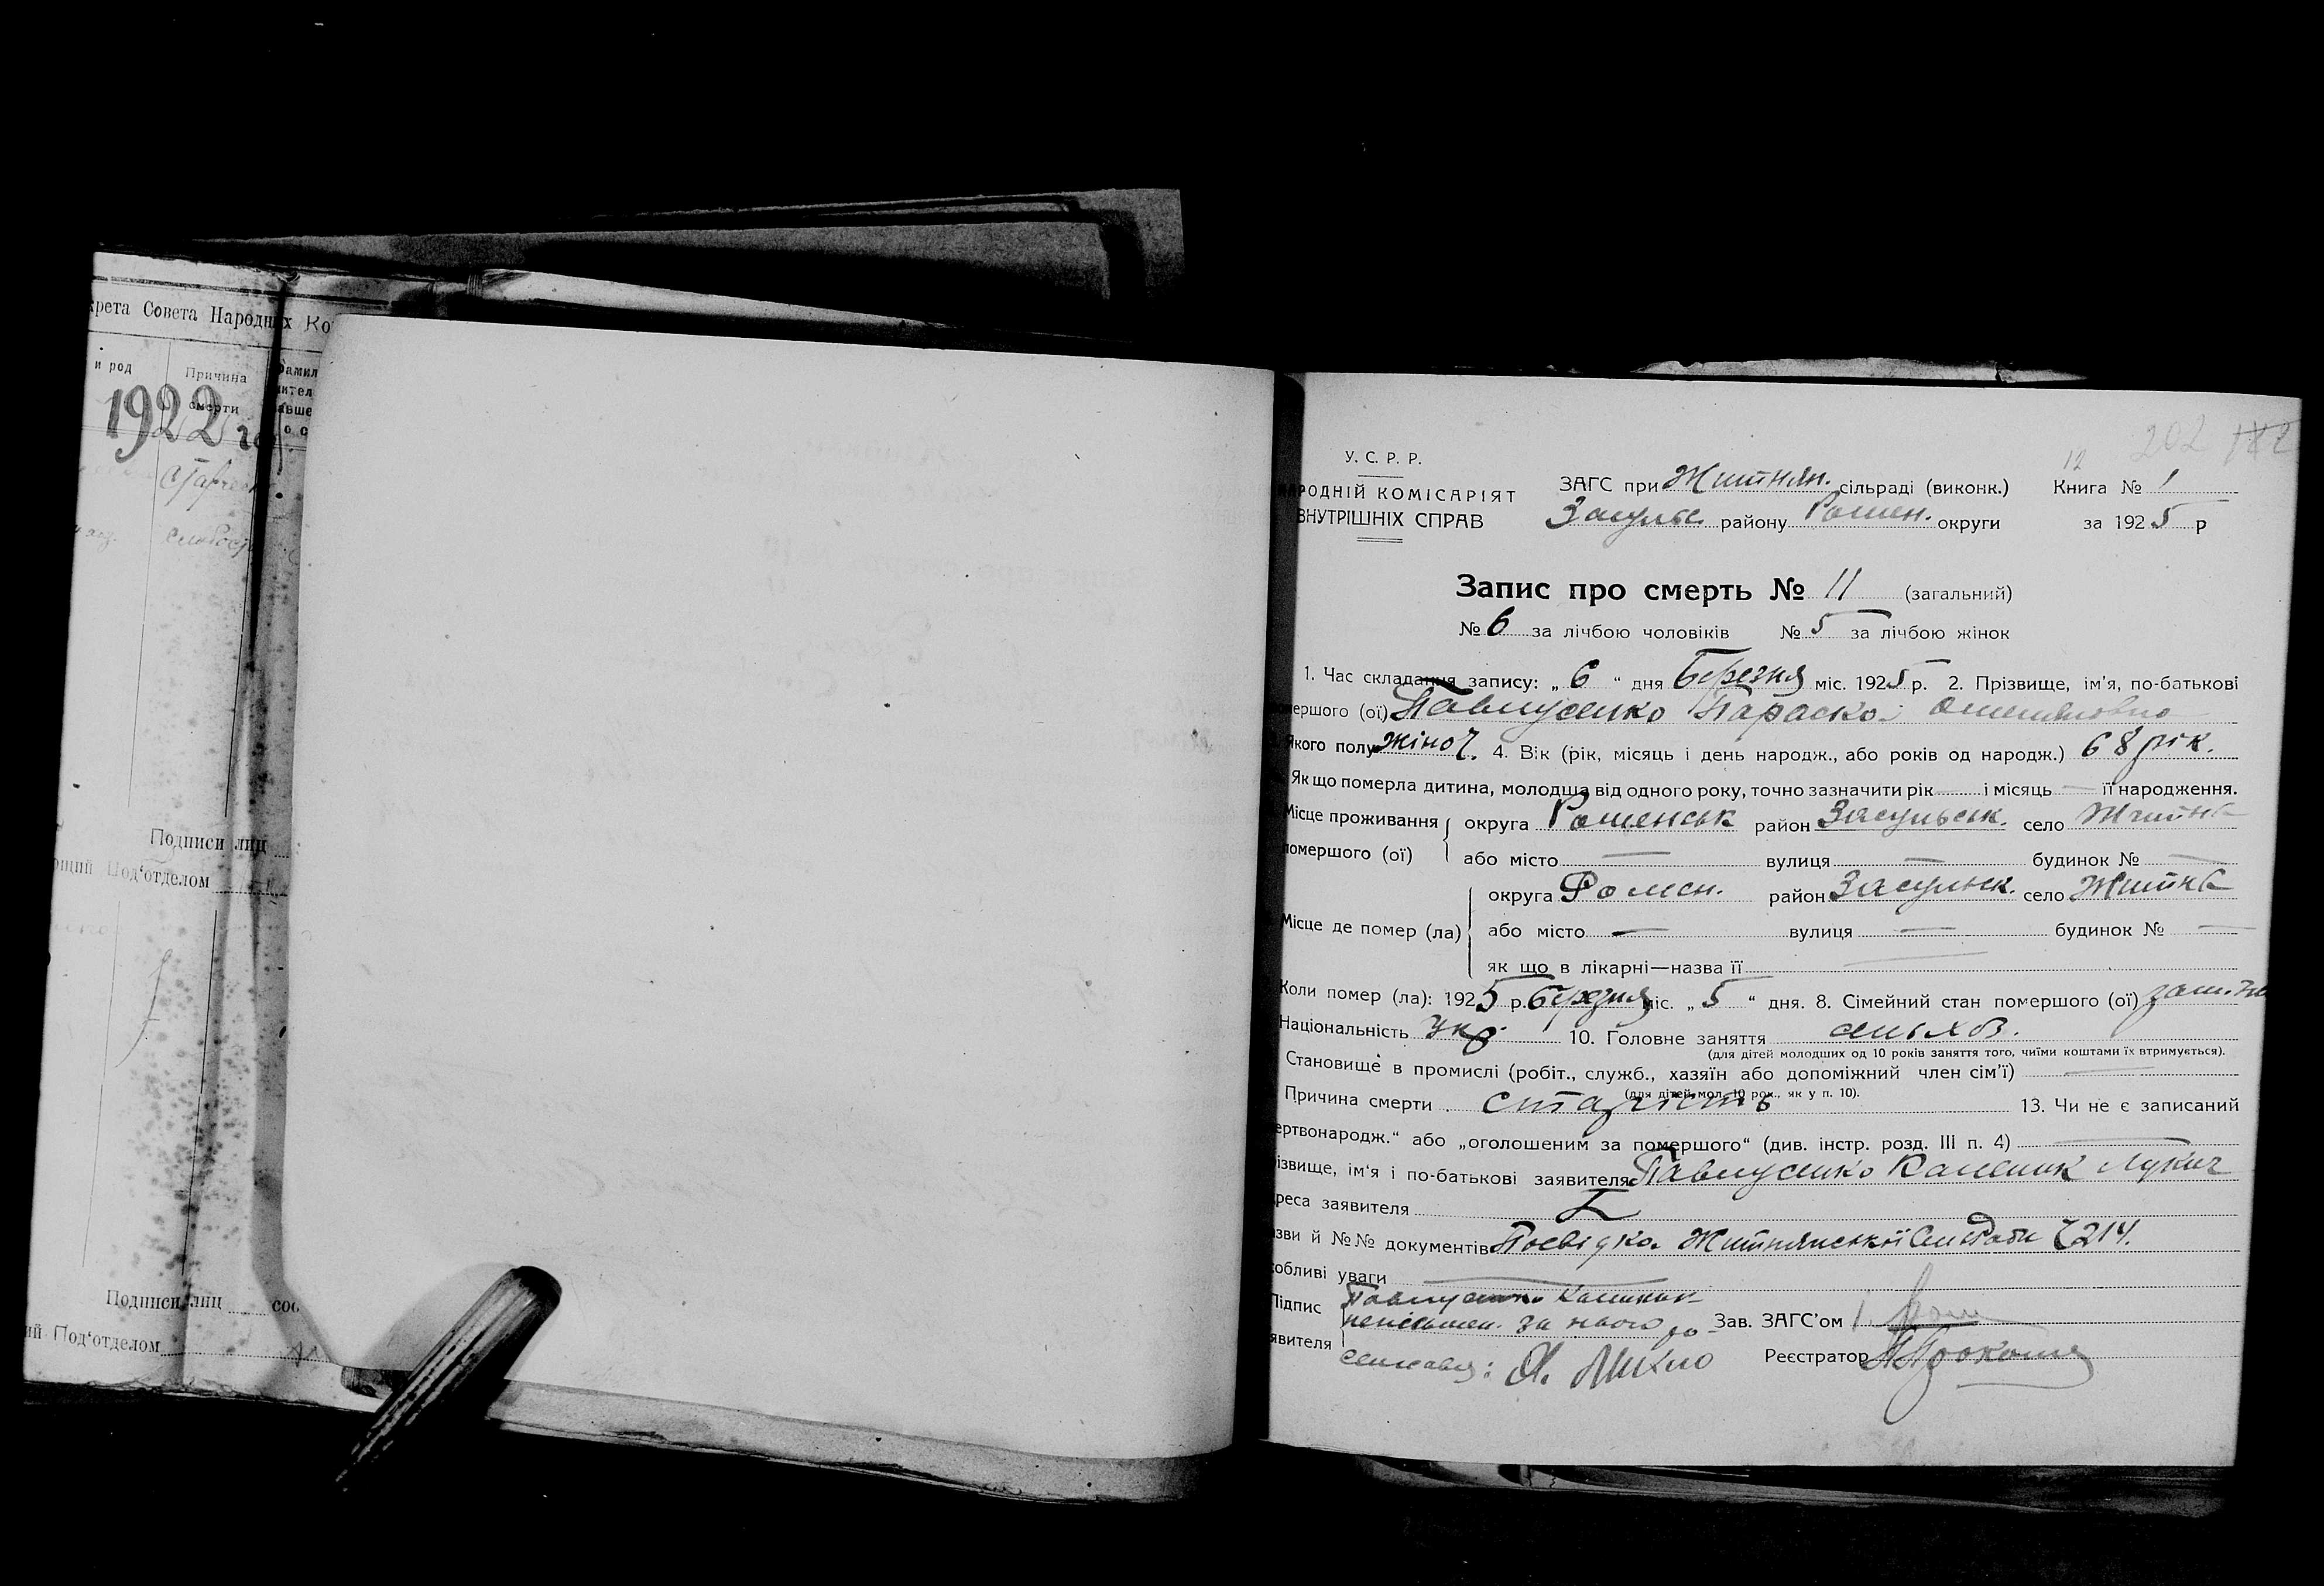 крета Совета Народных Ко
и род
Причина
смерти
1922
Подписи лиц
Под'отделом
Подписи лиц
ий Под'отделом
202
12
У. С. Р. Р.
НАРОДНІЙ КОМІСАРІЯТ
ВНУТРІШНІХ СПРАВ
ЗАГС при Житнян. сільраді (виконк.) Книга № 1
Засульс. району Ромен. округи за 1925 р
Запис про смерть № 11 (загальний)
№ 6 за лічбою чоловіків № 5 за лічбою жінок
1. Час складання запису: „ 6 “ дня Березня міс. 1925 р. 2. Прізвище, ім'я, по-батькові
помершого (ої) Павлусенко Параска
Якого полу жіноч. 4. Вік (рік, місяць і день народж., або років од народж.) 68 рік.
Як що померла дитина, молодша від одного року, точно зазначити рік — і місяць — її народження.
Місце проживання округа Роменськ район Засульськ. село Житне
помершого (ої) або місто — вулиця — будинок № —
округа Ромен. район Засульск. село Житне
Місце де помер (ла) або місто — вулиця — будинок № —
як що в лікарні—назва її —
Коли помер (ла): 1925 р. Березня міс. „ 5 “ дня. 8. Сімейний стан помершого (ої)
Національність Укр. 10. Головне заняття
(для дітей молодших од 10 років заняття того, чиїми коштами їх втримується).
Становище в промислі (робіт., служб., хазяїн або допоміжний член сім'ї) —
(для дітей мол. 10 рок., як у п. 10).
Причина смерти старість 13. Чи не є записаний
ертвонародж.“ або „оголошеним за помершого“ (див. інстр. розд. III п. 4) —
ізвище, ім'я і по-батькові заявителя Павлусенко Каленик Лукич
реса заявителя
зви й №№ документів Посвідка Житнянської Сільради Ч 214.
обливі уваги —
Підпис Павлусенко Каленик
неписьмен. за нього ро- Зав. ЗАГС'ом
явителя списався: Я. Михно Реєстратор